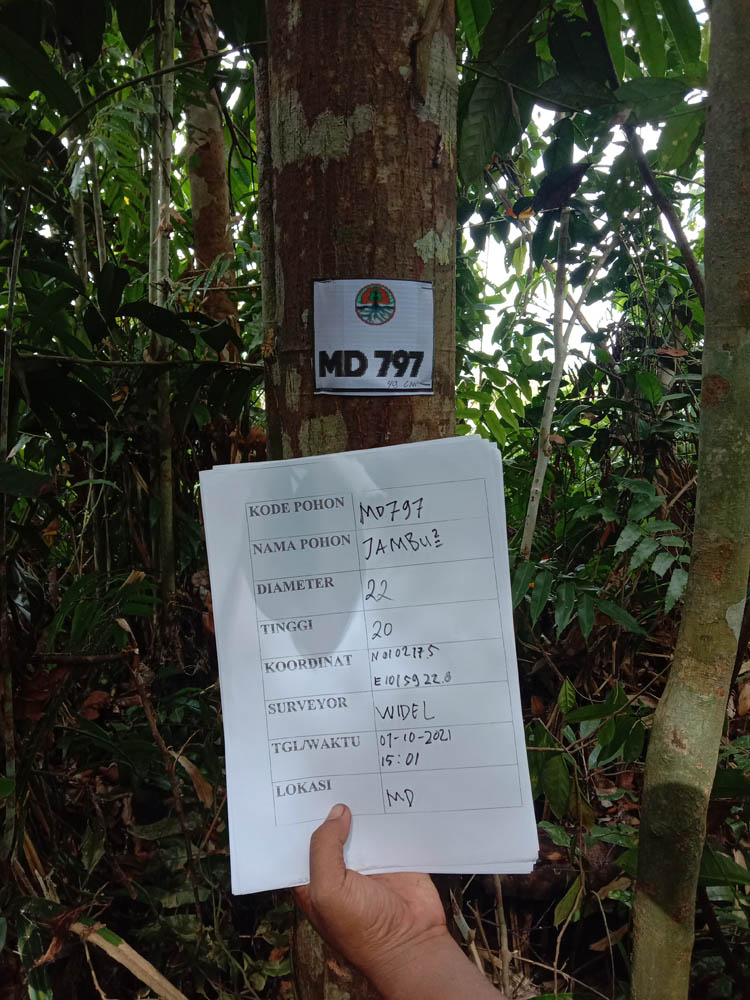 MD 797
49 cm
KODE POHON MD797
NAMA POHON JAMBU2
DIAMETER 22
TINGGI 20
KOORDINAT N 0102 17.5
E 10159 22.8
SURVEYOR WIDEL
TGL/WAKTU 07-10-2021
15:01
LOKASI MD